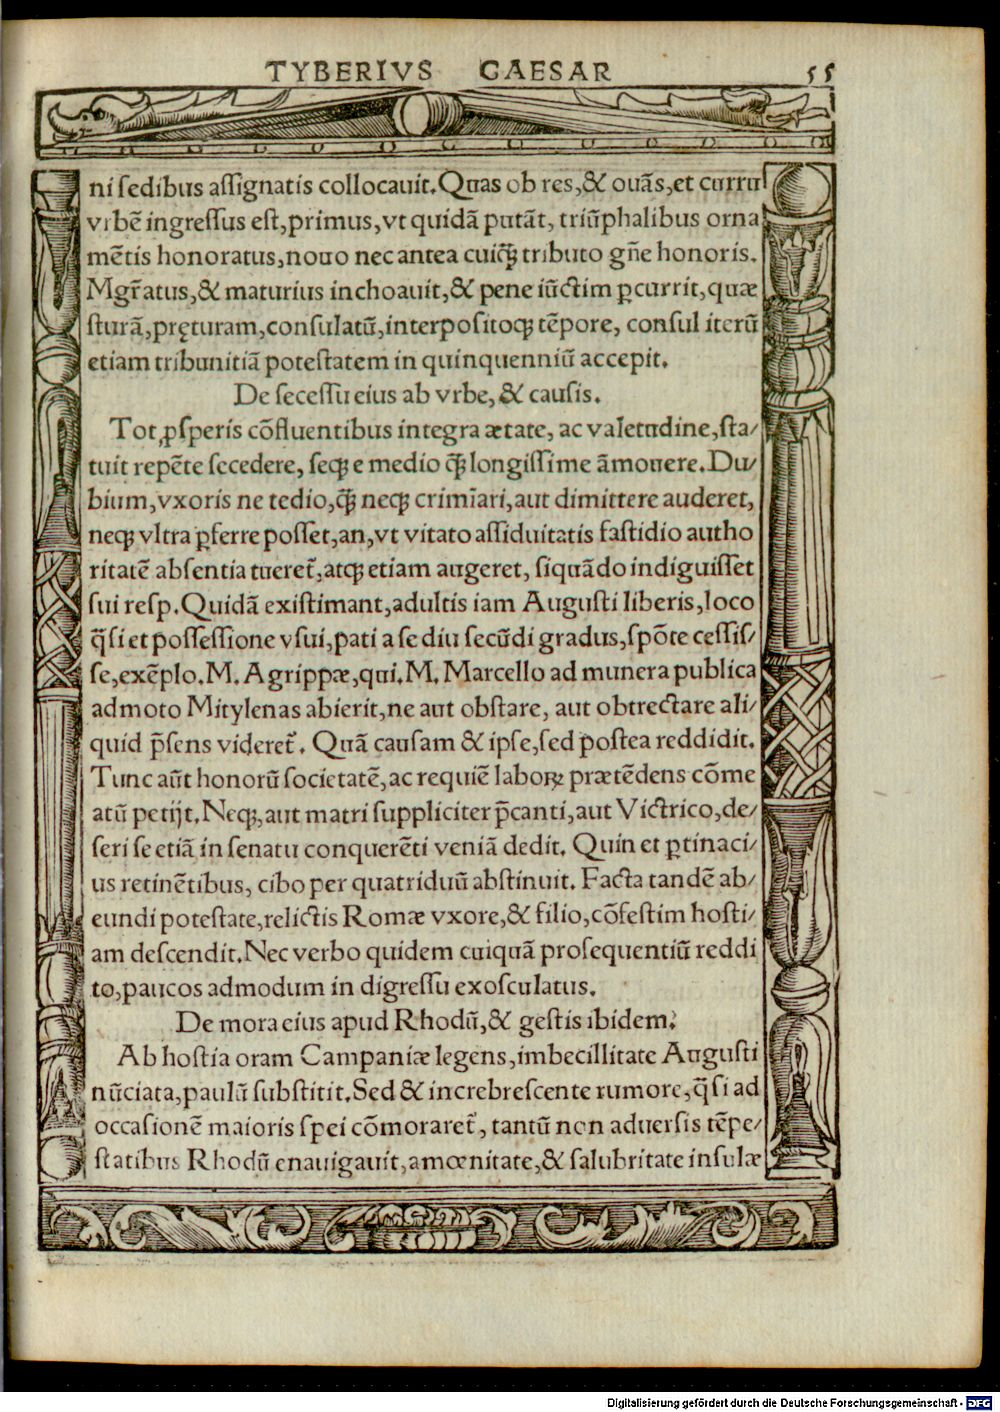 TYBERIVS CAESAR 55
ni ſedibus aſſignatis collocauit. Quas ob res, & ouãs, et curru
vrbẽ ingreſſus eſt, primus, vt quidã putãt, triũphalibus orna
mẽtis honoratus, nouo nec antea cuiq̃ꝫ tributo gñe honoris.
Mgr̃atus, & maturius inchoauit, & pene iũctim ꝑcurrit, quæ
ſturã, pręturam, conſulatũ, interpoſitoqꝫ tẽpore, conſul iterũ
etiam tribunitiã poteſtatem in quinquenniũ accepit.
De ſeceſſu eius ab vrbe, & cauſis.
Tot ꝓſperis cõfluentibus integra ætate, ac valetudine, ſta/
tuit repẽte ſecedere, ſeqꝫ e medio q̃ꝫ longiſſime ãmouere. Du/
bium, vxoris ne tedio, q̃ꝫ neqꝫ crimĩari, aut dimittere auderet,
neqꝫ vltra ꝑferre poſſet, an, vt vitato aſſiduitatis faſtidio autho
ritatẽ abſentia tueret᷑, atqꝫ etiam augeret, ſiquãdo indiguiſſet
ſui reſp. Quidã exiſtimant, adultis iam Auguſti liberis, loco
q̃ſi et poſſeſſione vſui, pati a ſe diu ſecũdi gradus, ſpõte ceſſiſ/
ſe, exẽplo. M. Agrippæ, qui. M. Marcello ad munera publica
admoto Mitylenas abierit, ne aut obſtare, aut obtrectare ali/
quid p̃ſens videret᷑. Quã cauſam & ipſe, ſed poſtea reddidit.
Tunc aũt honorũ ſocietatẽ, ac requiẽ laboꝝ prætẽdens cõme
atũ petijt. Neqꝫ, aut matri ſuppliciter p̃canti, aut Victrico, de/
ſeri ſe etiã in ſenatu conquerẽti veniã dedit. Quin et ꝑtinaci/
us retinẽtibus, cibo per quatriduũ abſtinuit. Facta tandẽ ab/
eundi poteſtate, relictis Romæ vxore, & filio, cõfeſtim hoſti/
am deſcendit. Nec verbo quidem cuiquã proſequentiũ reddi
to, paucos admodum in digreſſu exoſculatus.
De mora eius apud Rhodũ, & geſtis ibidem.
Ab hoſtia oram Campaniæ legens, imbecillitate Auguſti
nũciata, paulũ ſubſtitit. Sed & increbreſcente rumore, q̃ſi ad
occaſionẽ maioris ſpei cõmoraret᷑, tantũ non aduerſis tẽpe/
ſtatibus Rhodũ enauigauit, amœnitate, & ſalubritate inſulæ
Digitalisierung gefördert durch die Deutsche Forschungsgemeinschaft - DFG